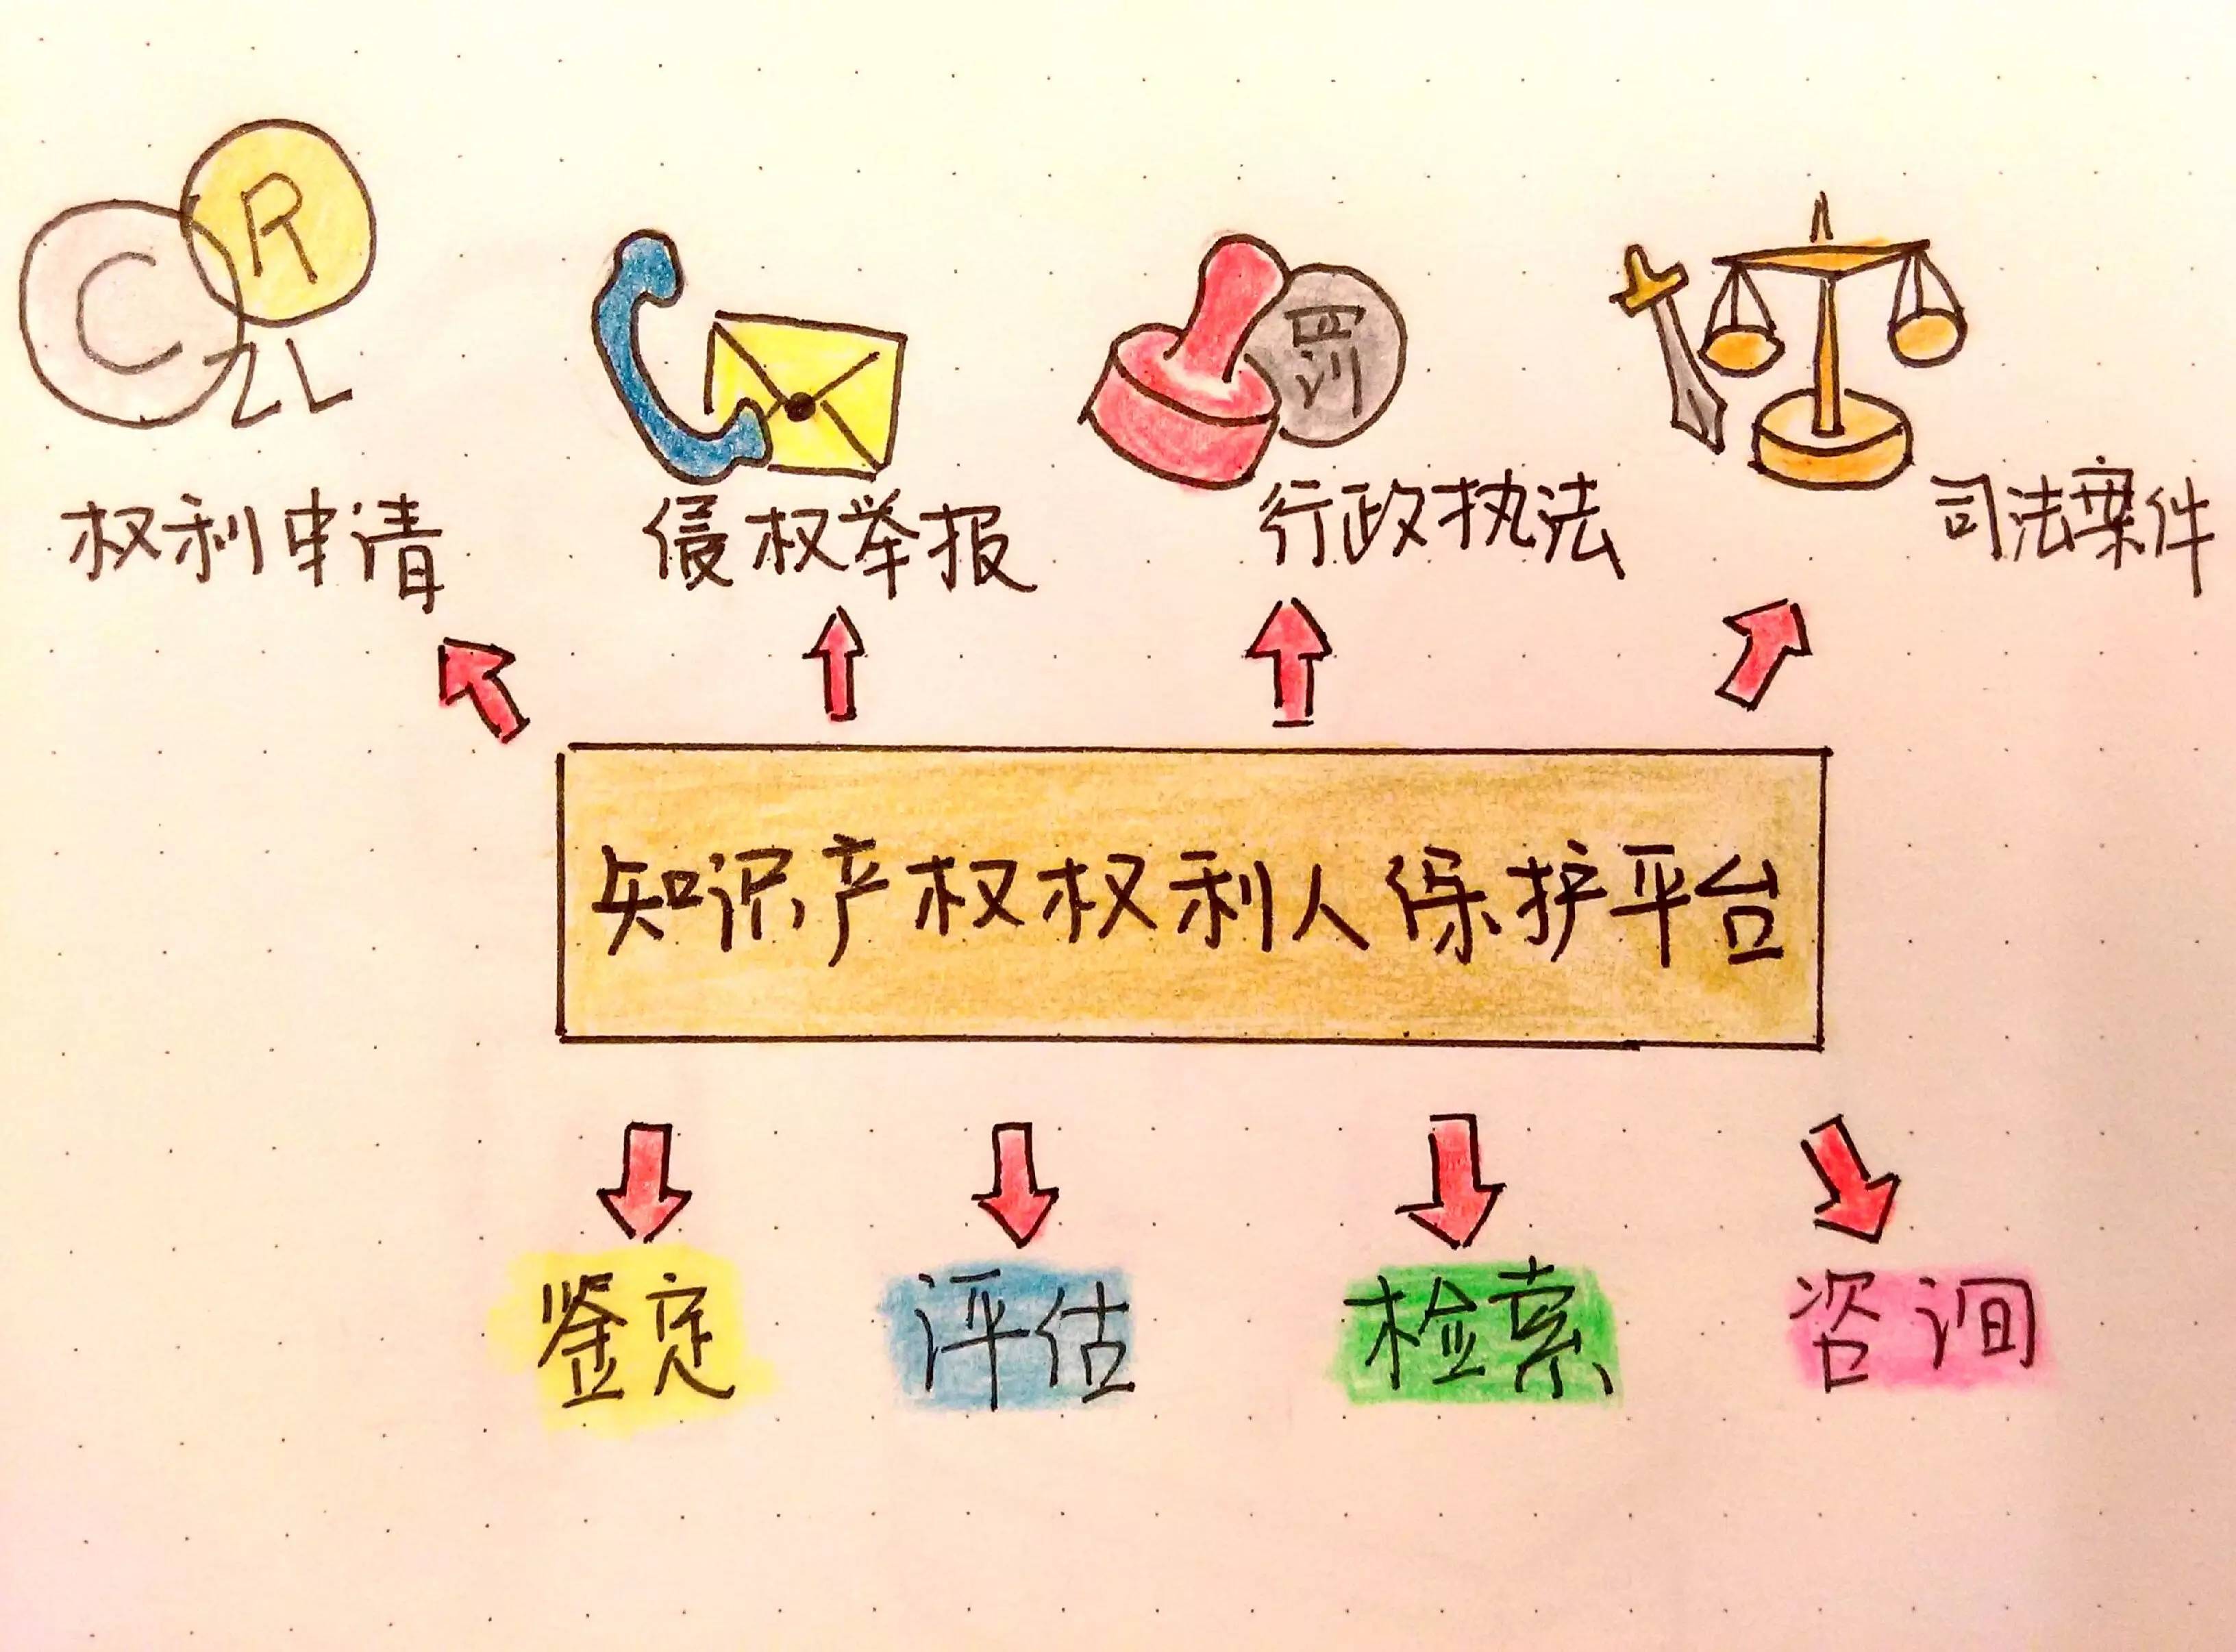 R
C
ZL
罚
权利申请
侵权举报
行政执法
司法案件
知识产权权利人保护平台
鉴定
评估
检索
咨询